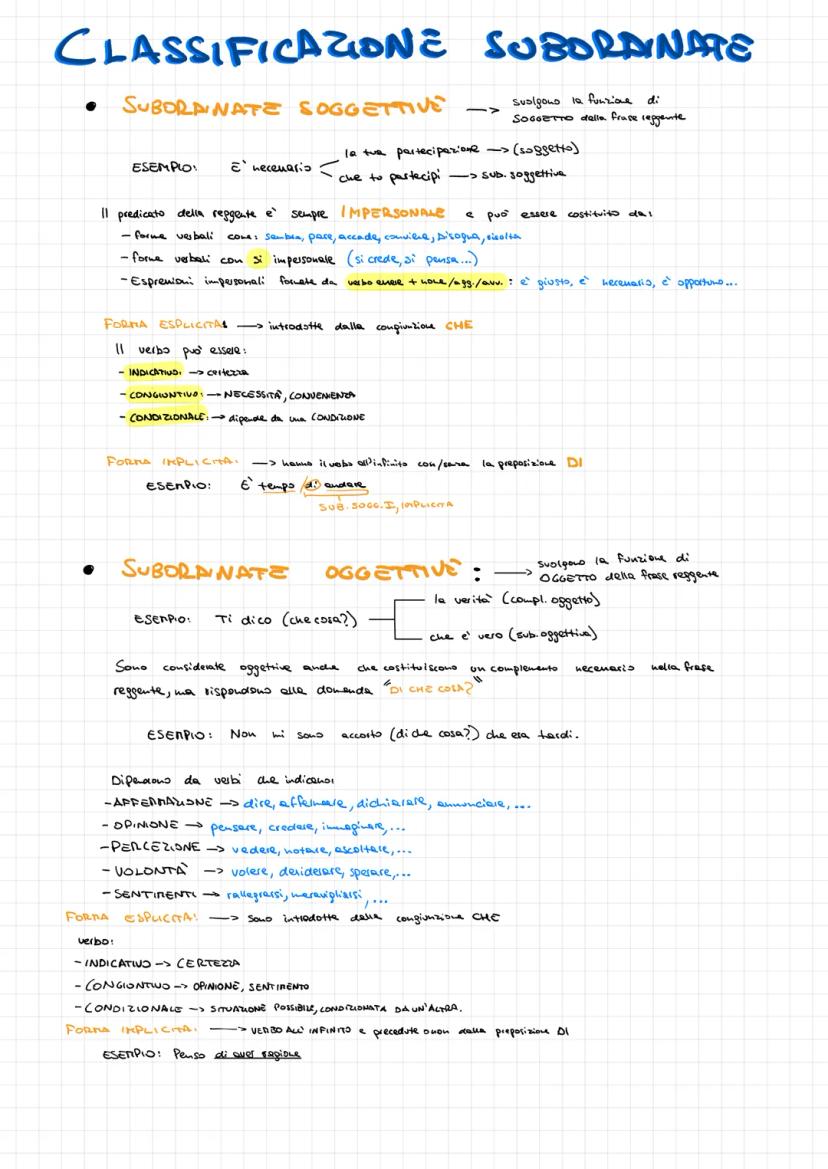 CLASSIFICAZIONE SUBORDINATE
• SUBORDINATE SOGGETTIVE → svolgono la funzione di
SOGGETTO della frase reggente
la tua partecipazione → (soggetto)
ESEMPIO: E' necessario
che tu partecipi → sub. soggettiva
Il predicato della reggente e' sempre IMPERSONALE e puo' essere costituito da:
- forme verbali come: sembra, pare, accade, conviene, bisogna, risulta
- forme verbali con si impersonale (si crede, si pensa...)
- Espressioni impersonali formate da verbo essere + nome/agg./avv.: e' giusto, e' necessario, e' opportuno...
FORMA ESPLICITA: → introdotte dalla congiunzione CHE
Il verbo puo' essere:
- INDICATIVO: → certezza
- CONGIUNTIVO: → NECESSITÀ, CONVENIENZA
- CONDIZIONALE: → dipende da una CONDIZIONE
FORMA IMPLICITA: → hanno il verbo all'infinito con/senza la preposizione DI
ESEMPIO: E' tempo / di andare
SUB. SOGG. I, IMPLICITA
• SUBORDINATE OGGETTIVE: → svolgono la funzione di
OGGETTO della frase reggente
la verità (compl. oggetto)
ESEMPIO: Ti dico (che cosa?)
che e' vero (sub. oggettiva)
Sono considerate oggettive anche che costituiscono un complemento necessario nella frase
reggente, ma rispondono alla domanda "DI CHE COSA?"
ESEMPIO: Non mi sono accorto (di che cosa?) che era tardi.
Dipendono da verbi che indicano:
- AFFERMAZIONE → dire, affermare, dichiarare, annunciare, ...
- OPINIONE → pensare, credere, immaginare, ...
- PERCEZIONE → vedere, notare, ascoltare, ...
- VOLONTÀ → volere, desiderare, sperare, ...
- SENTIMENTI → rallegrarsi, meravigliarsi, ...
FORMA ESPLICITA: → sono introdotte dalla congiunzione CHE
verbo:
- INDICATIVO -> CERTEZZA
- CONGIUNTIVO -> OPINIONE, SENTIMENTO
- CONDIZIONALE -> SITUAZIONE POSSIBILE, CONDIZIONATA DA UN'ALTRA.
FORMA IMPLICITA: → VERBO ALL'INFINITO e precedute o non dalla preposizione DI
ESEMPIO: Penso di aver ragione